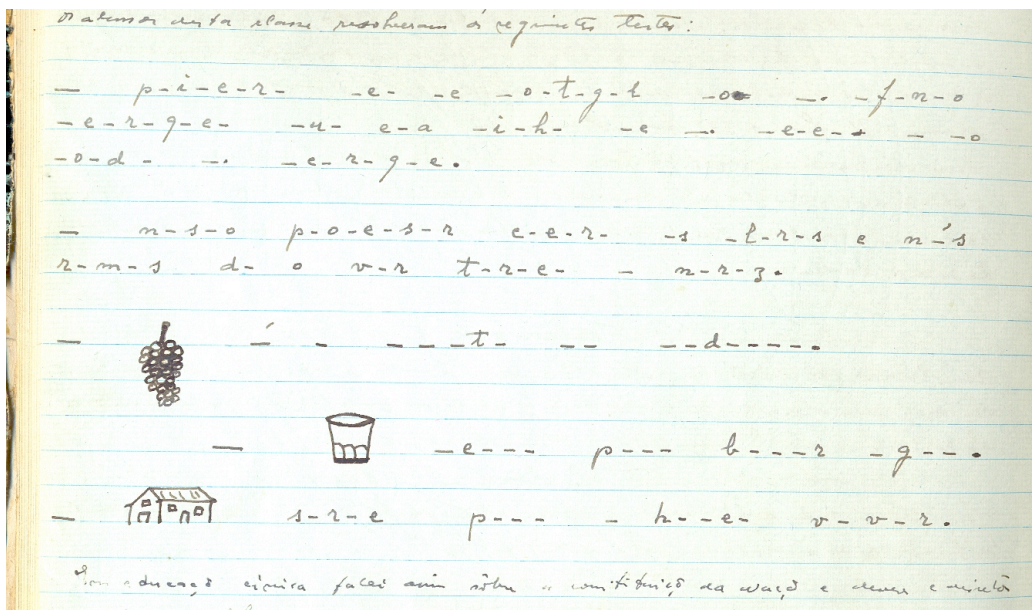 Os alunos desta classe resolveram os seguintes testes:
— p-i-e-r- -e- -e -o-t-g-l -o- —. -f-n-o
-e-r-q-e- -u- e-a -i-h- -e —. -e-e-- - -o
-o-d- —. -e-r-q-e.
— n-s-o p-o-e-s-r c-e-r- -s -l-r-s e n-´s
r-m-s d- o v-r t-r-e- - n-r-z.
— —́ - ---t- -- --d-----.
— -e--- p--- b----r -g---.
— s-r-e p--- - h--e- v-v-r.
Em educação cívica falei sôbre a constituição da nação e